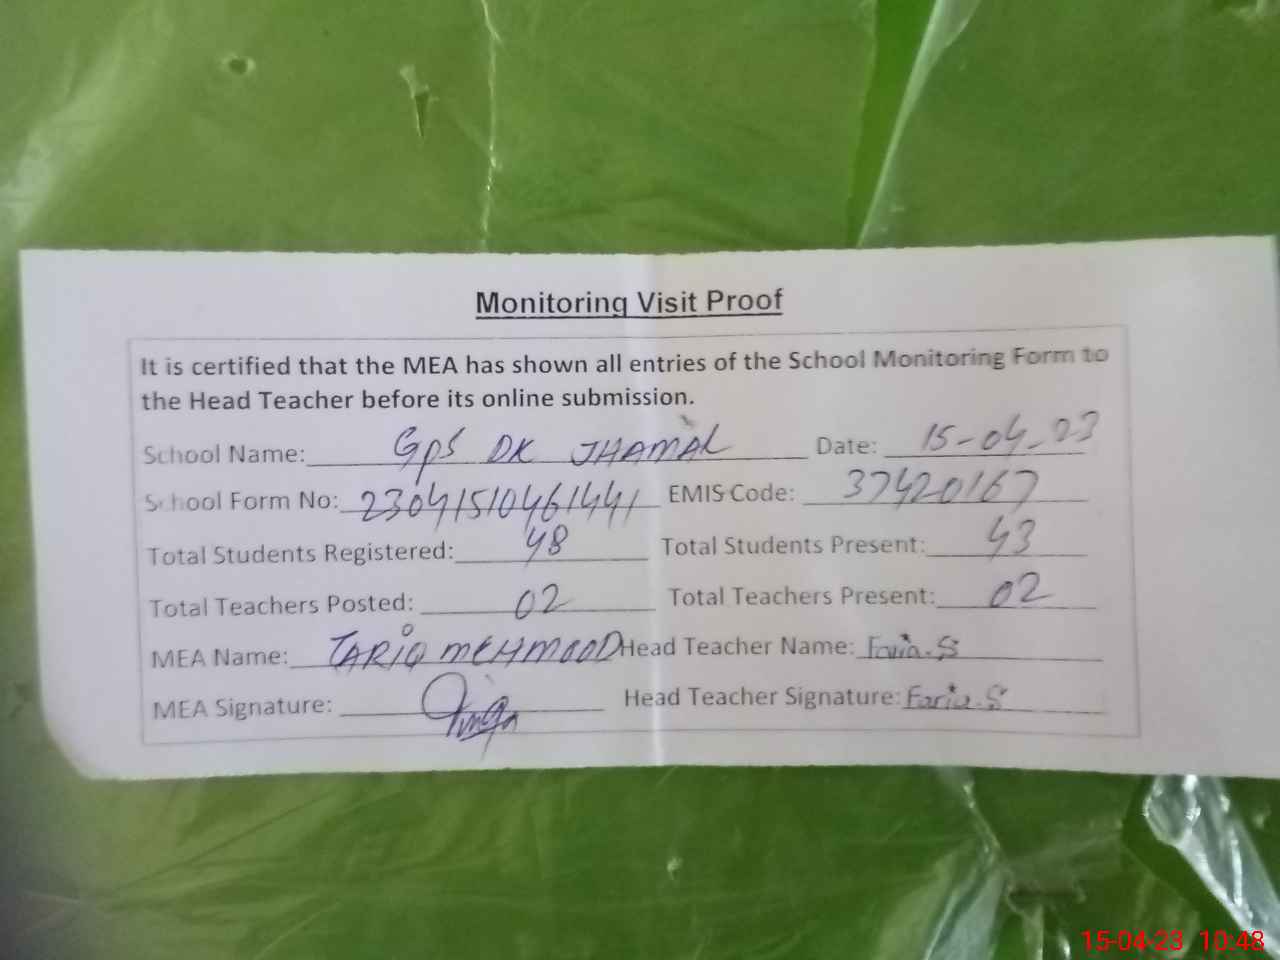 Monitoring Visit Proof
It is certified that the MEA has shown all entries of the School Monitoring Form to
the Head Teacher before its online submission.
School Name: GPS DK JHAMAL Date: 15-04-23
School Form No: 23041510461441 EMIS Code: 37420167
Total Students Registered: 48 Total Students Present: 43
Total Teachers Posted: 02 Total Teachers Present: 02
MEA Name: TARIQ MEHMOOD Head Teacher Name: Faria.S
MEA Signature: Head Teacher Signature: Faria.S
15-04-23 10:48